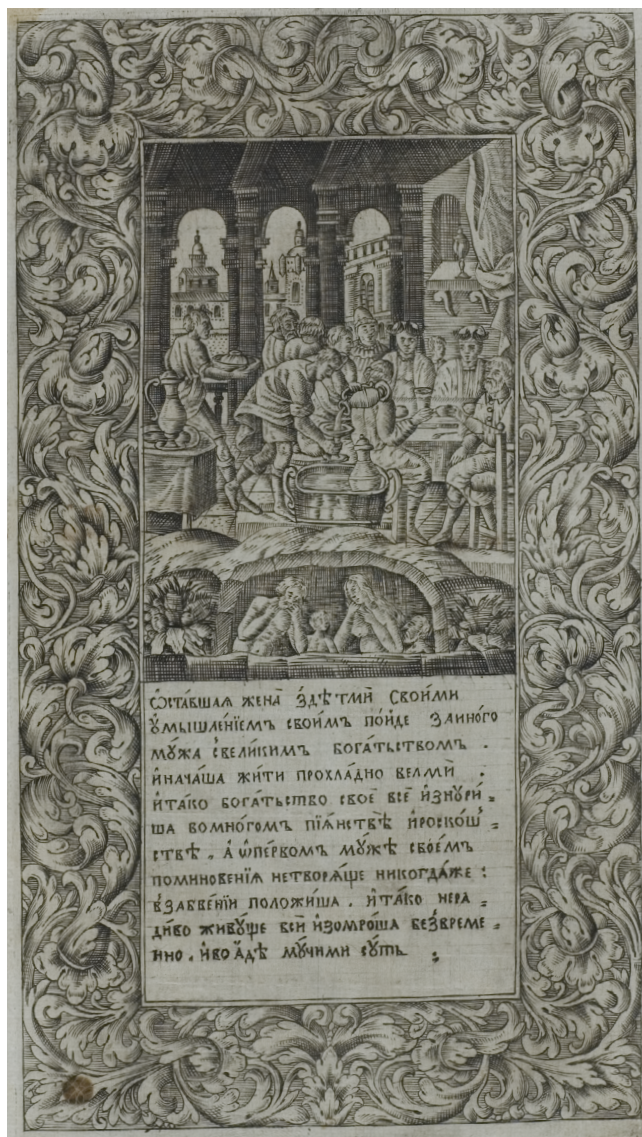 Ѡста́вшаѧ жена̀ здѣтмѝ свои́ми
ᲂу҆мышле́нїемъ свои́мъ по́йде заино́го
мꙋ́жа свели́кимъ бога́тьствомъ .
и҆нача́ша жи́ти прохла́дно велмѝ :
и҆та́ко бога́тьство своѐ всѐ и҆знꙋри́ =
ша вомно́гомъ пїѧ́нствѣ и҆роско́ш =
ствѣ . А҆ ѡ҆пе́рвомъ мꙋ́жѣ свое́мъ
поминове́нїѧ нетворѧ́ше никогда́же :
взабве́нїи положи́ша . и҆та́ко нера =
ди́во живꙋ́ще всѝ и҆зомро́ша безвреме =
нно . и҆во а҆́дѣ мꙋ́чими сꙋ́ть :